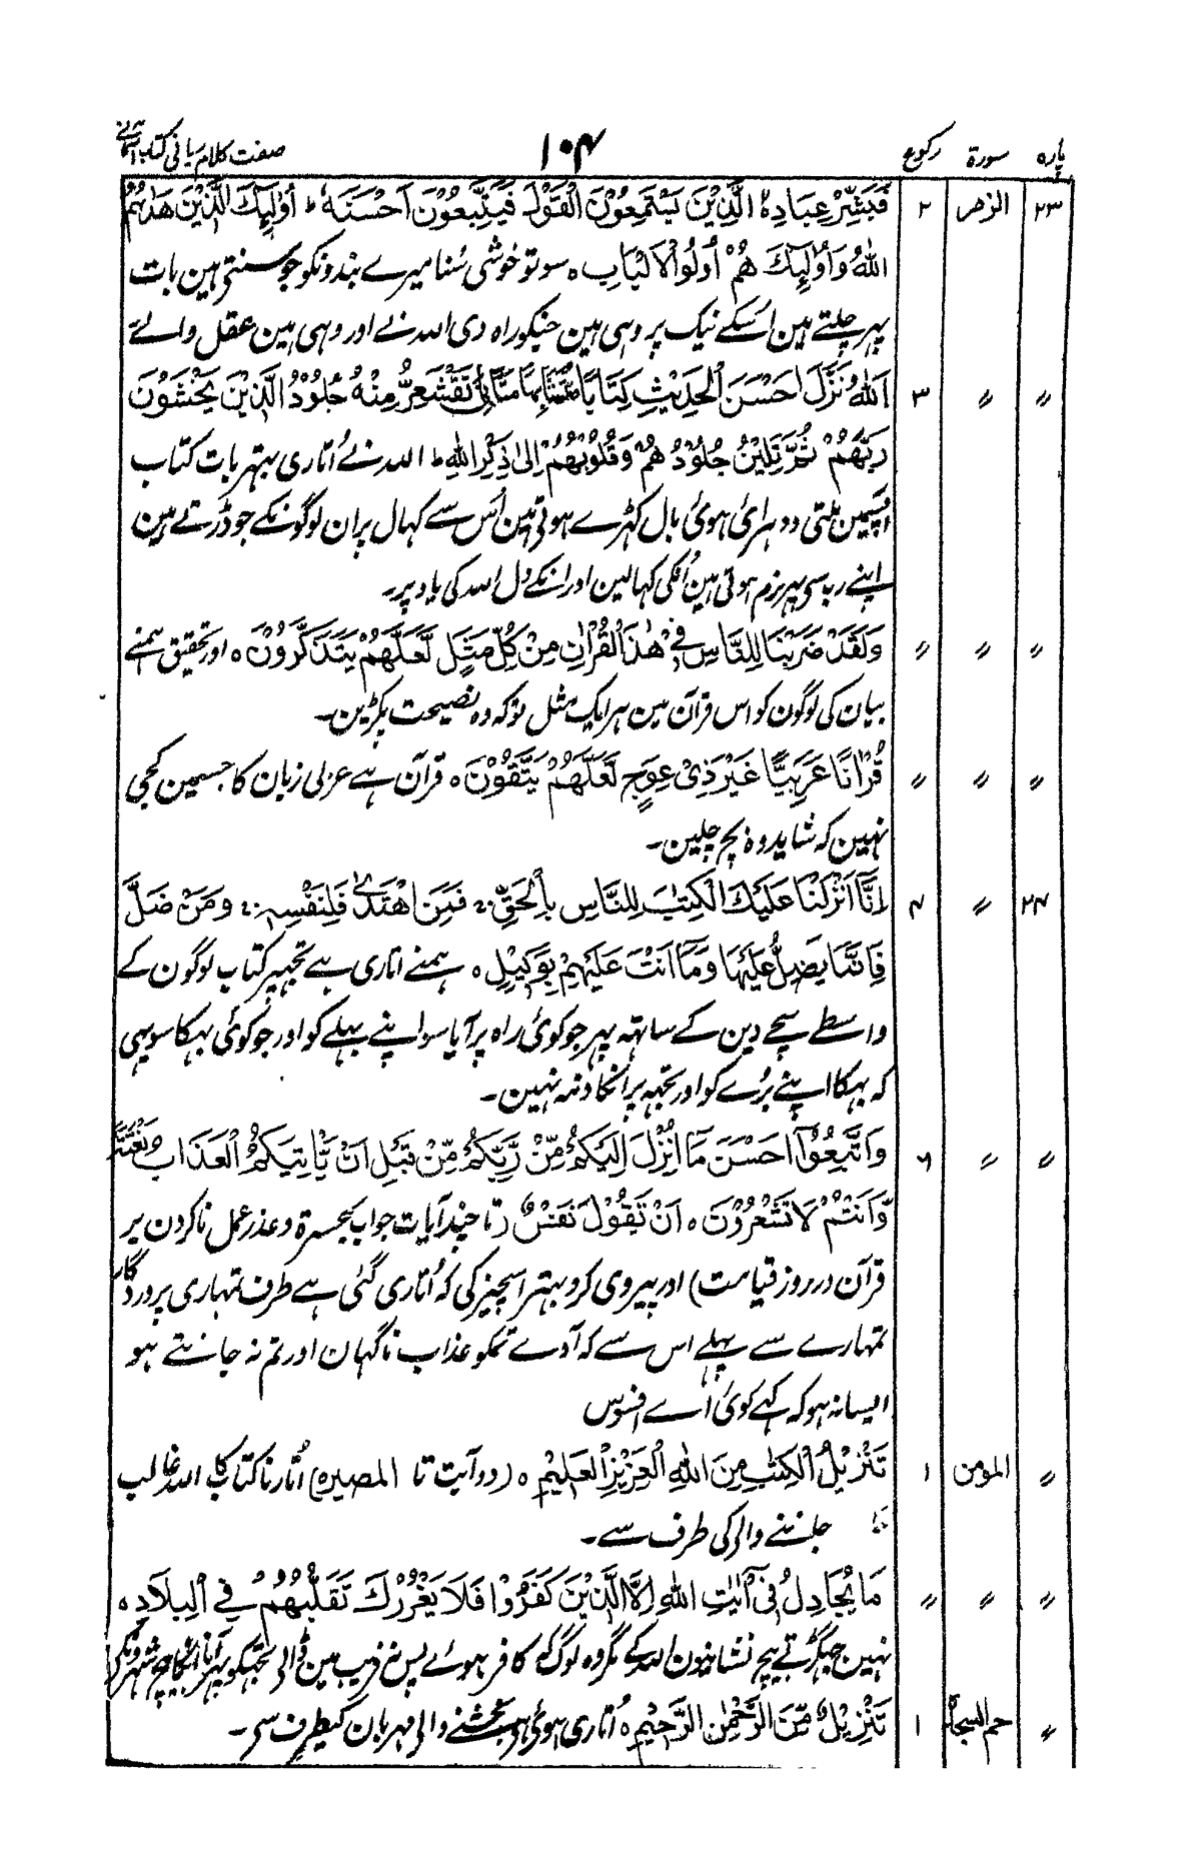 پارہ سورۃ رکوع ۱۰۴ صفت کلام ربانی کتاب آسمانی
۲۳ الزمر ۲ فَبَشِّرْ عِبَادِہ الَّذِیْنَ یَسْتَمِعُوْنَ الْقَوْلَ فَیَتَّبِعُوْنَ اَحْسَنَہٗ ط اُولٰٓئِکَ الَّذِیْنَ ھَدٰىہُمُ
اللہُ وَاُولٰٓئِکَ ھُمْ اُولُوا الْاَلْبَابِ ہ سو تو خوشی سُنا میرے بندونکو جو سنتے ہین بات
پہر چلتے ہین اُسکے نیک پر وہی ہین جنکو راہ دی اللہ نے اور وہی ہین عقل والے
〃 〃 ۳ اَللہُ نَزَّلَ اَحْسَنَ الْحَدِیْثِ کِتَابًا مُّتَشَابِہًا مَّثَانِیَ تَقْشَعِرُّ مِنْہُ جُلُوْدُ الَّذِیْنَ یَخْشَوْنَ
رَبَّھُمْ ثُمَّ تَلِیْنُ جُلُوْدُ ھُمْ وَقُلُوْبُھُمْ اِلٰی ذِکْرِ اللہِ ط اللہ نے اُتاری بہتر بات کتاب
آپسمین ملتی دوہرائی ہوئی بال کہڑے ہوتی ہین اُس سے کہال پر ان لوگونکے جو ڈرتے ہین
اپنے رب سی پہر نرم ہوتی ہین اُنکی کہالین اور انکے دل اللہ کی یاد پر۔
〃 〃 〃 وَلَقَدْ ضَرَبْنَا لِلنَّاسِ فِیْ ھٰذَا الْقُرْاٰنِ مِنْ کُلِّ مَثَلٍ لَّعَلَّھُمْ یَتَذَکَّرُوْنَ ہ اور تحقیق ہمنے
بیان کی لوگون کو اس قرآن مین ہر ایک مثل توکہ وہ نصیحت پکڑین۔
〃 〃 〃 قُرْاٰنًا عَرَبِیًّا غَیْرَ ذِیْ عِوَجٍ لَّعَلَّھُمْ یَتَّقُوْنَ ہ قرآن ہے عربی زبان کا جسمین کجی
نہین کہ شاید وہ بچ چلین۔
۲۴ 〃 ۴ اِنَّا اَنْزَلْنَا عَلَیْکَ الْکِتٰبَ لِلنَّاسِ بِالْحَقِّ ج فَمَنِ اھْتَدٰی فَلِنَفْسِہٖ ج وَمَنْ ضَلَّ
فَاِنَّمَا یَضِلُّ عَلَیْہَا وَمَآ اَنْتَ عَلَیْہِمْ بِوَکِیْلٍ ہ ہمنے اتاری ہے تجہپر کتاب لوگون کے
واسطے سچے دین کے ساتہہ پہر جو کوئی راہ پر آیا سو اپنے بہلے کو اور جو کوئی بہکا سو یہی
کہ بہکا اپنے بُرے کو اور تجہہ پر انکا ذمہ نہین۔
〃 〃 ۶ وَاتَّبِعُوْٓا اَحْسَنَ مَآ اُنْزِلَ اِلَیْکُمْ مِّنْ رَّبِّکُمْ مِّنْ قَبْلِ اَنْ یَّاْتِیَکُمُ الْعَذَابُ بَغْتَۃً
وَّاَنْتُمْ لَا تَشْعُرُوْنَ ہ اَنْ تَقُوْلَ نَفْسٌ (تا چند آیات جواب بحسرۃ و عذر عمل ناکردن بر
قرآن در روز قیامت) اور پیروی کرو بہتر اسچیز کی کہ اُتاری گئی ہے طرف تمہاری پروردگار
تمہارے سے پہلے اس سے کہ آوے تمکو عذاب ناگہان اور تم نہ جانتے ہو
ایسا نہ ہو کہ کہے کوئی اے افسوس
〃 المومن ۱ تَنْزِیْلُ الْکِتٰبِ مِنَ اللہِ الْعَزِیْزِ الْعَلِیْمِ ہ (دو آیت تا المصیرہ) اُتارنا کتاب کا اللہ غالب
جاننے والی کی طرف سے۔
〃 〃 〃 مَا یُجَادِلُ فِیْٓ اٰیٰتِ اللہِ اِلَّا الَّذِیْنَ کَفَرُوْا فَلَا یَغْرُرْکَ تَقَلُّبُھُمْ فِی الْبِلَادِ ہ
نہین جہگڑتے بیچ نشانیون اللہ کے مگر وہ لوگ کہ کافر ہوئے پس نہ فریب مین ڈالی تجہکو پہرنا انکا بیچ شہرونکے
〃 حم السجدۃ ۱ تَنْزِیْلٌ مِّنَ الرَّحْمٰنِ الرَّحِیْمِ ہ اُتاری ہوئی ہے بخشنے والی مہربان کیطرف سی۔